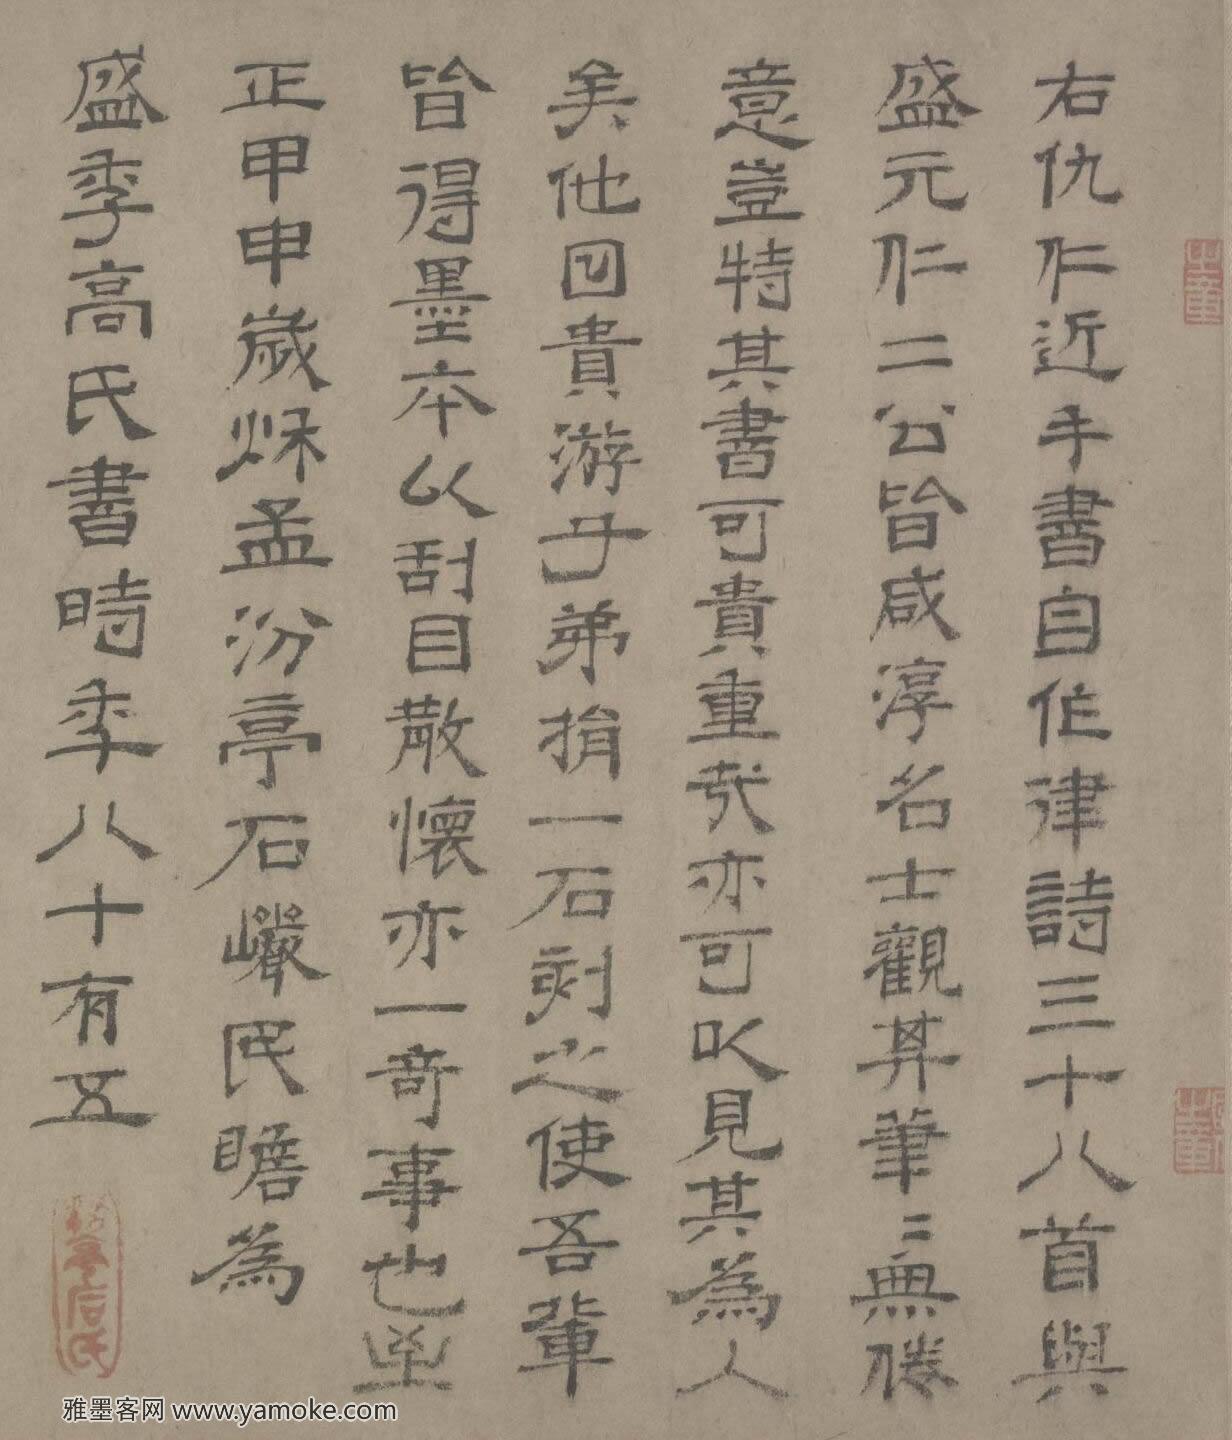 右仇仁近手書自作律詩三十八首與
盛元仁二公皆咸淳名士觀其筆〻無倦
意豈特其書可貴重哉亦可以見其為人
矣他日貴游子弟捐一石刻之使吾輩
皆得墨本以刮目散懷亦一奇事也至
正甲申歲秌孟汾亭石巖民瞻為
盛季高氏書時年八十有五
汾亭石氏
雅墨客网 www.yamoke.com